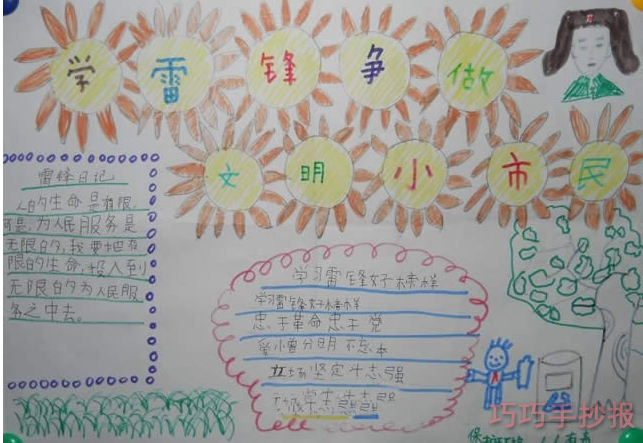 学雷锋争做
文明小市民
雷锋日记
人的生命是有限,
可是,为人民服务是
无限的,我要把有
限的生命,投入到
无限的为人民服
务之中去。
学习雷锋好榜样
学习雷锋好榜样
忠于革命忠于党
爱小曾分明不忘本
立场坚定斗志强
巧巧手抄报